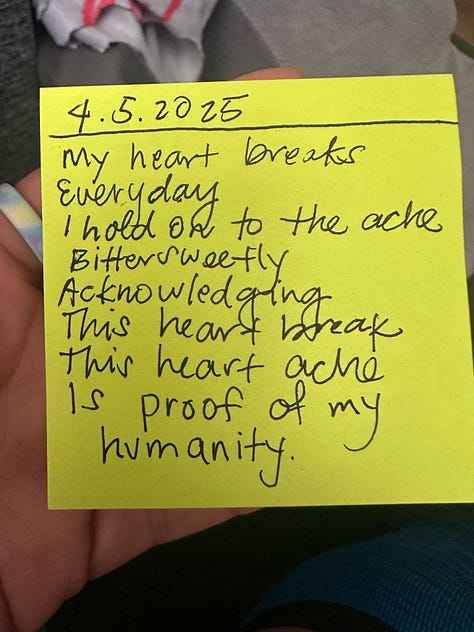 4.5.2025
My heart breaks
Everyday
I hold on to the ache
Bittersweetly
Acknowledging
This heart break
This heart ache
Is proof of my
humanity.